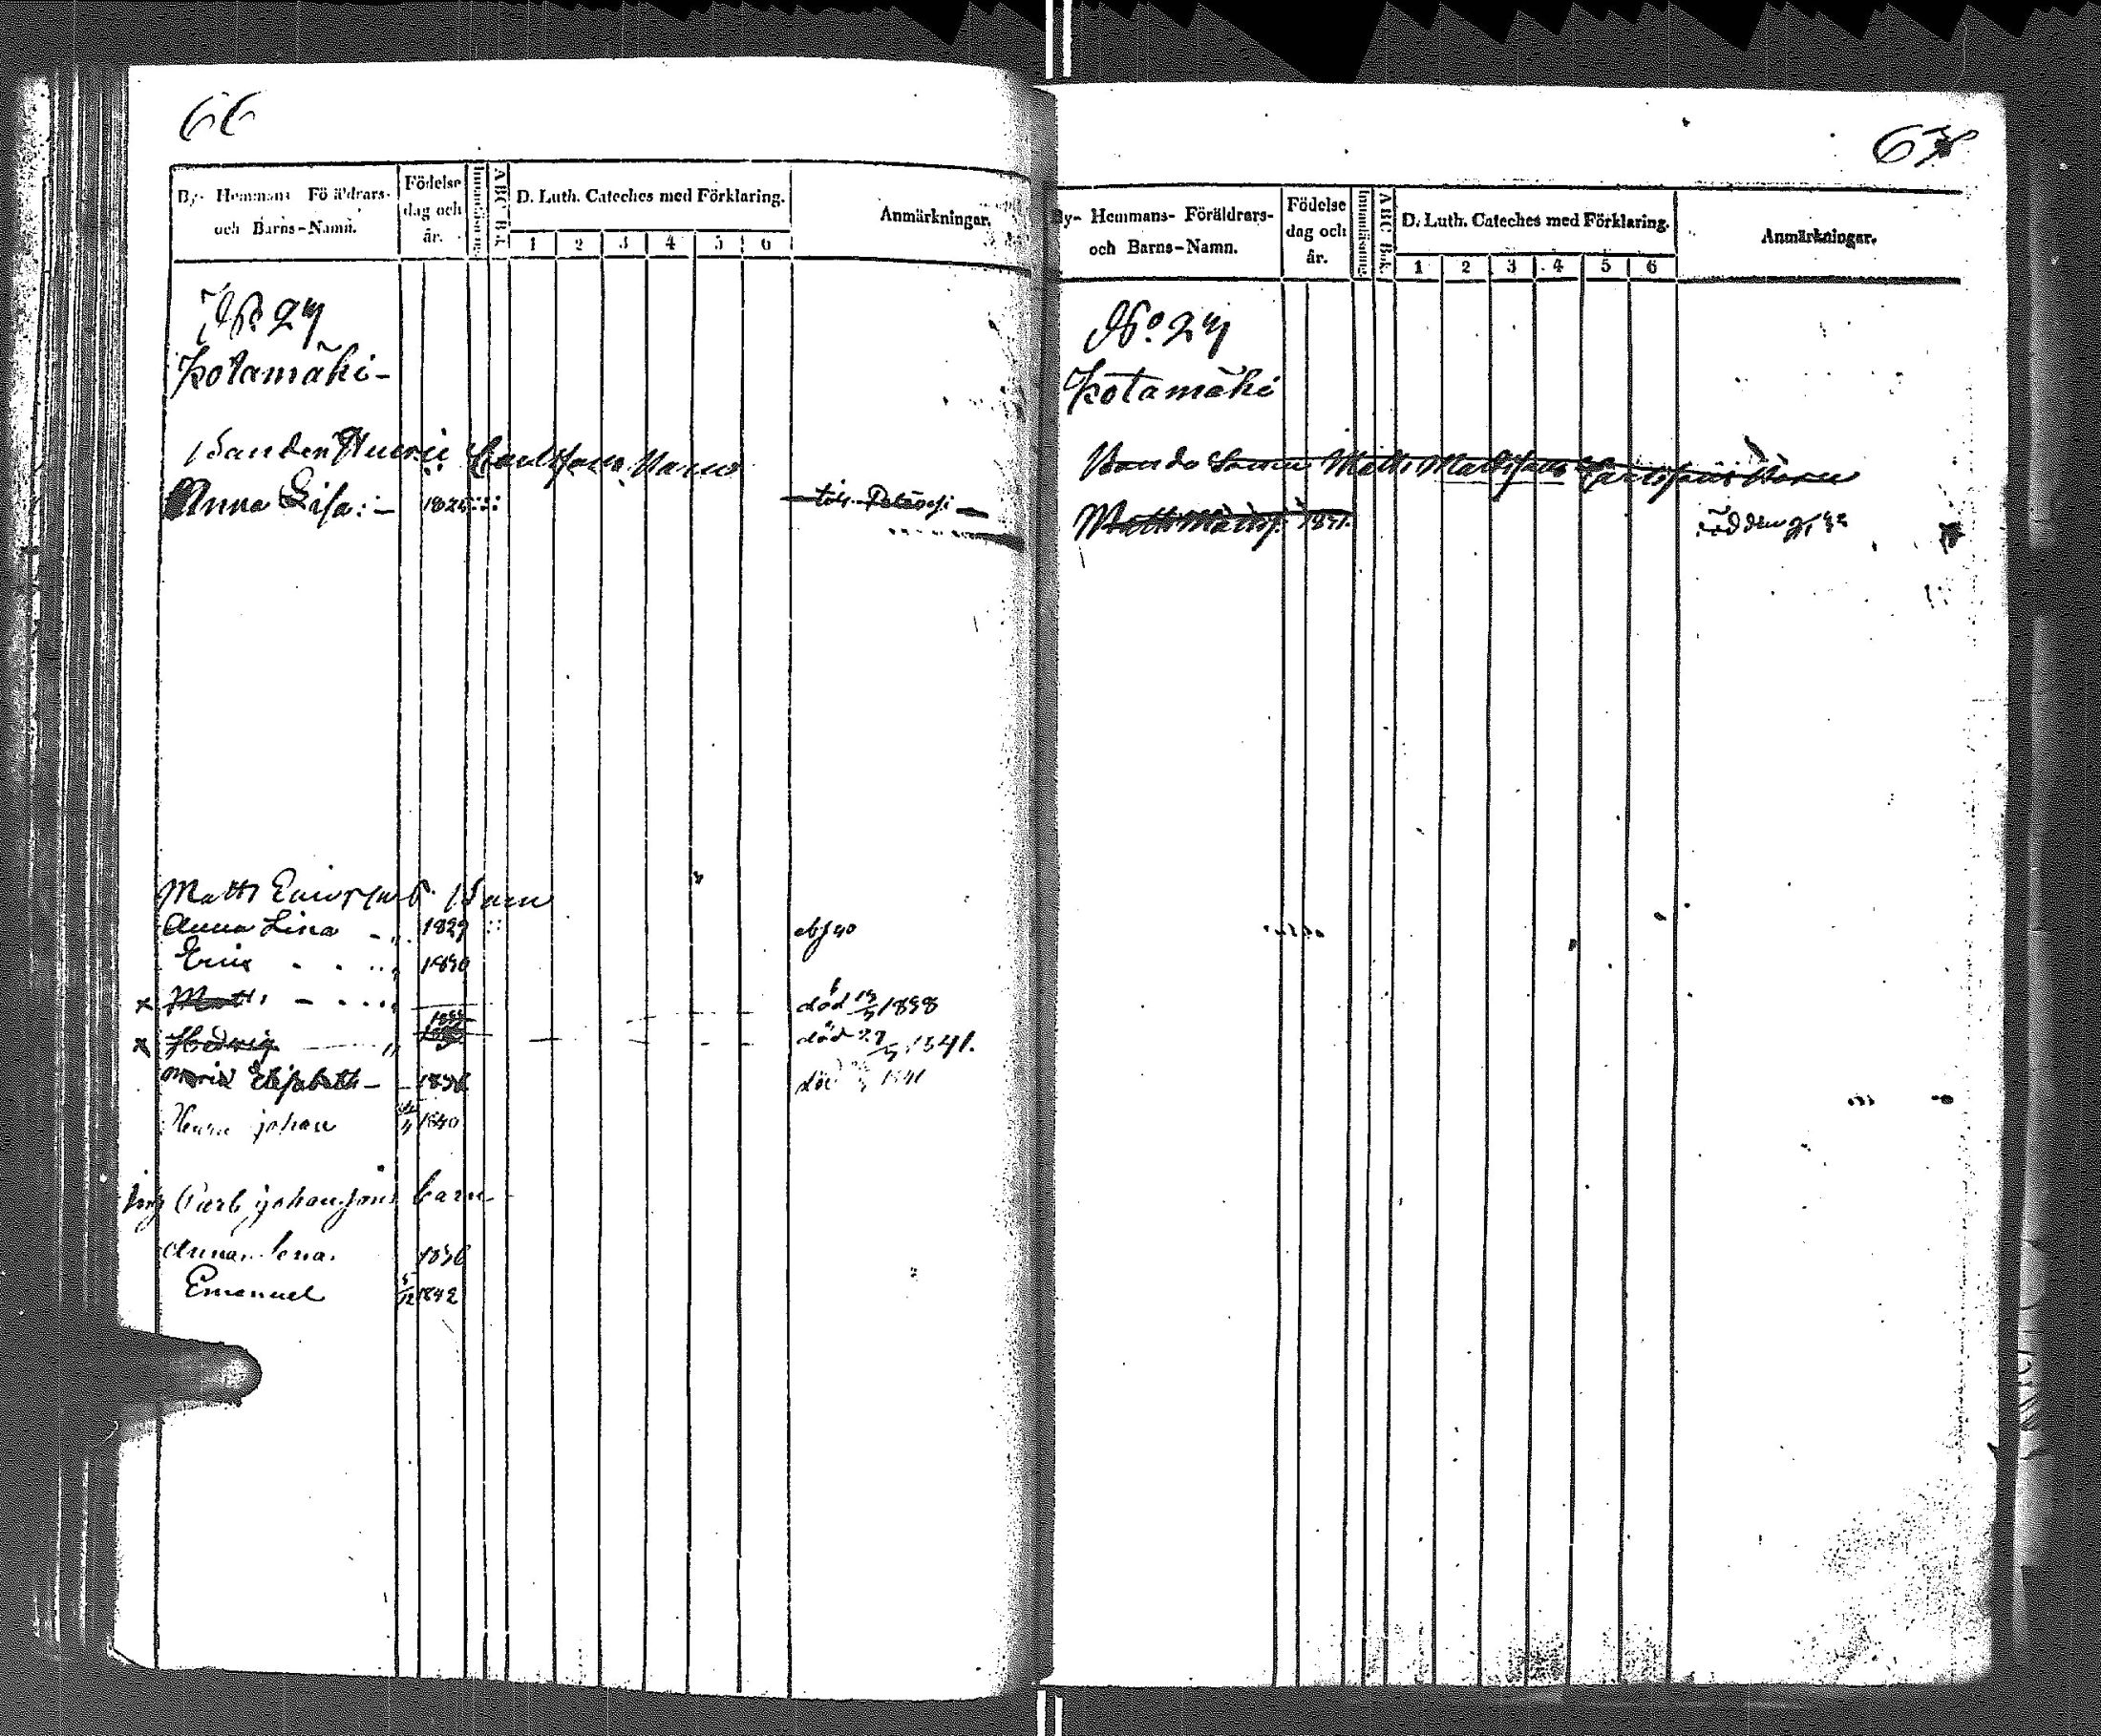 66
By- Hemmans Föräldrars-
och Barns-Namn.
Födelse
dag och
år.
Innanläsning
ABC Bok.
D. Luth. Cateches med Förklaring.
1 2 3 4 5 6
Anmärkningar.
No 27
Kotamäki-
Bonden Carlssons Barn
Anna Lisa:- 1825
Matts Ericssons Barn
Anna Lina 1829
Eric 1830
x Matts död 1838
x Hedvig död 1841.
Maria Elisabeth 1836 död 1841
Johan 1840
Carl Johanssons barn
Anna Lena. 1836
Emanuel 5/12 1842
67
By- Hemmans- Föräldrars-
och Barns-Namn.
Födelse
dag och
år.
Innanläsning
ABC Bok.
D. Luth. Cateches med Förklaring.
1 2 3 4 5 6
Anmärkningar.
No. 27
Kotamäki
Bonde Matts Mattssons Carlssons Barn
Matts Mattss. 1831.